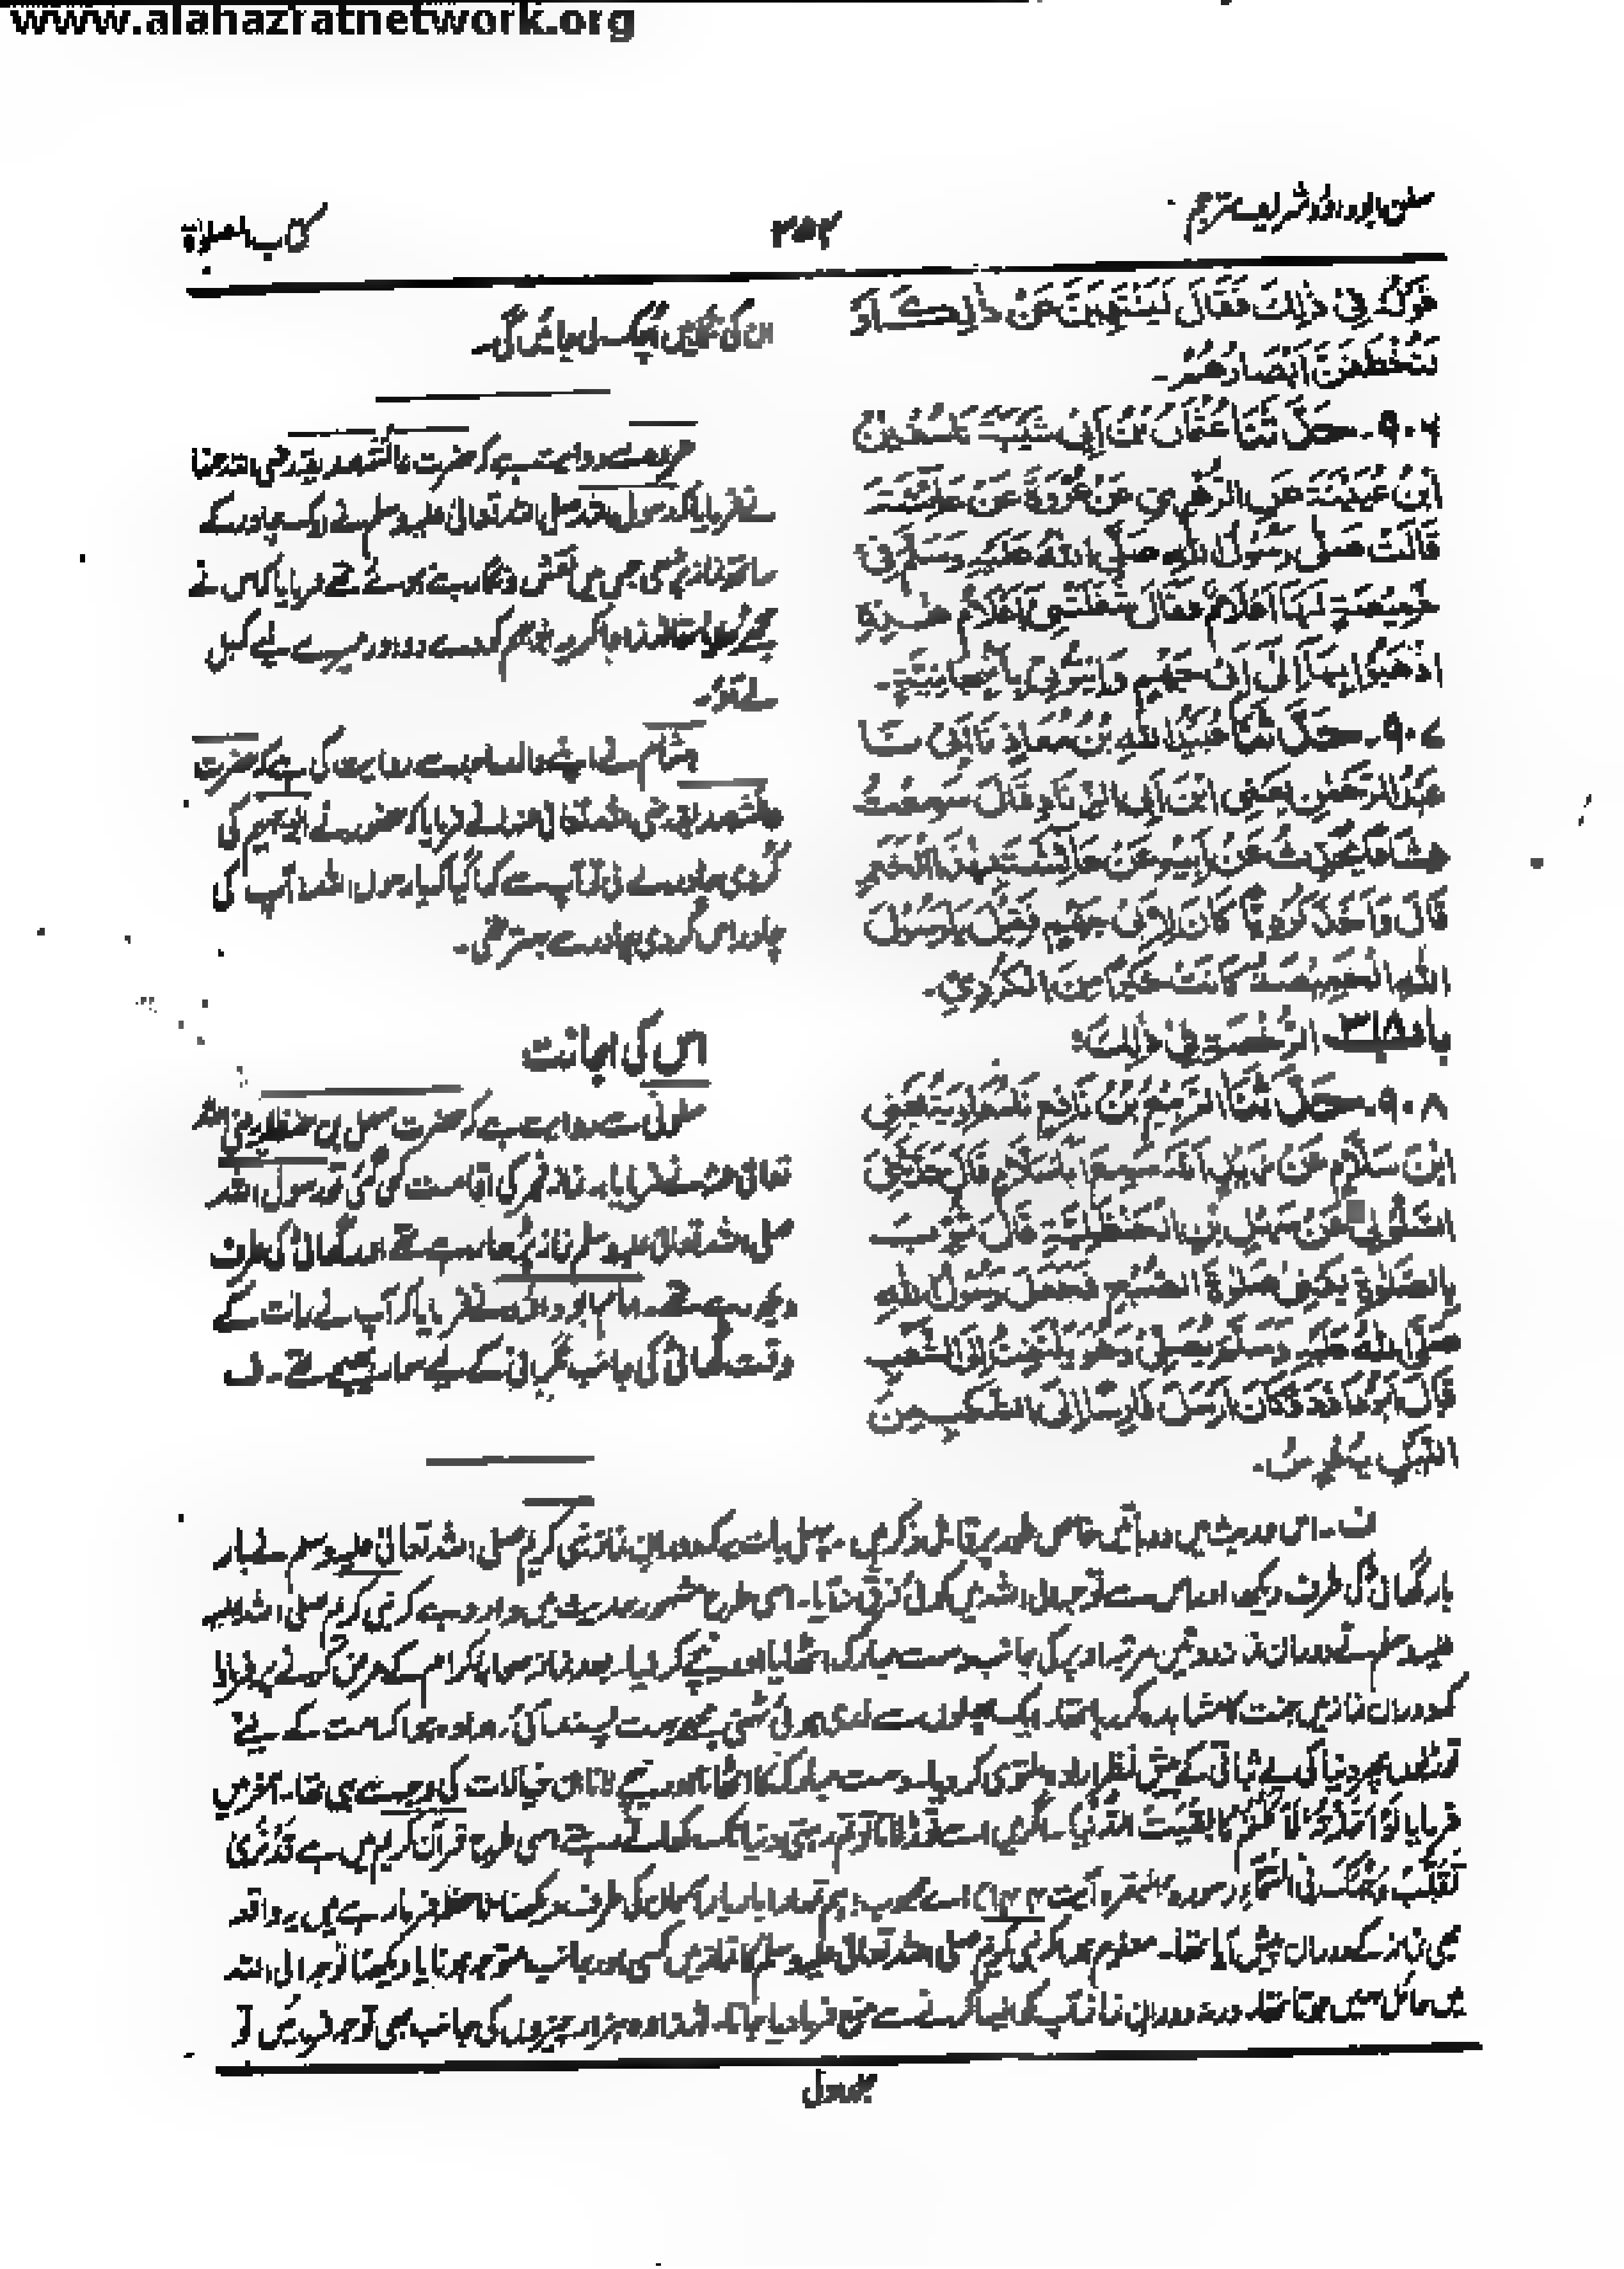 www.alahazratnetwork.org
سنن ابوداؤد شریف مترجم
۳۵۴
کتاب الصلاۃ
قَوْلُهُ فِي ذٰلِكَ فَقَالَ لَيَنْتَهِيَنَّ عَنْ ذٰلِكَ اَوْ
لَتُخْطَفَنَّ اَبْصَارُهُمْ۔
۹۰۶۔ حَدَّثَنَا عُثْمَانُ بْنُ اَبِي شَيْبَةَ نَا سُفْيٰنُ
ابْنُ عُيَيْنَةَ عَنِ الزُّهْرِيِّ عَنْ عُرْوَةَ عَنْ عَائِشَةَ
قَالَتْ صَلّٰى رَسُوْلُ اللهِ صَلَّى اللهُ عَلَيْهِ وَسَلَّمَ فِي
خَمِيْصَةٍ لَهَا اَعْلَامٌ فَقَالَ شَغَلَتْنِيْ اَعْلَامُ هٰذِهِ
اذْهَبُوْا بِهَا اِلٰى اَبِيْ جَهْمٍ وَاْتُوْنِيْ بِاَنْبِجَانِيَّتِهٖ۔
۹۰۷۔ حَدَّثَنَا عُبَيْدُ اللهِ بْنُ مُعَاذٍ نَا اَبِيْ نَا
عَبْدُ الرَّحْمٰنِ يَعْنِي ابْنَ اَبِي الزِّنَادِ قَالَ سَمِعْتُ
هِشَامًا يُحَدِّثُ عَنْ اَبِيْهِ عَنْ عَائِشَةَ بِهٰذَا الْخَبَرِ
قَالَ وَاَخَذَ كُرْدِيًّا كَانَ لِاَبِيْ جَهْمٍ فَقِيْلَ يَا رَسُوْلَ
اللهِ الْخَمِيْصَةُ كَانَتْ خَيْرًا مِنَ الْكُرْدِيِّ۔
بَابُ ۳۱۸ الرُّخْصَةِ فِيْ ذٰلِكَ
۹۰۸۔ حَدَّثَنَا الرَّبِيْعُ بْنُ نَافِعٍ نَا مُعَاوِيَةُ يَعْنِي
ابْنَ سَلَّامٍ عَنْ زَيْدٍ اَنَّهُ سَمِعَ اَبَا سَلَّامٍ قَالَ حَدَّثَنِي
السَّلُوْلِيُّ عَنْ سَهْلِ بْنِ الْحَنْظَلِيَّةِ قَالَ ثُوِّبَ
بِالصَّلٰوةِ يَعْنِيْ صَلٰوةَ الصُّبْحِ فَجَعَلَ رَسُوْلُ اللهِ
صَلَّى اللهُ عَلَيْهِ وَسَلَّمَ يُصَلِّيْ وَهُوَ يَلْتَفِتُ اِلَى الشِّعْبِ
قَالَ اَبُوْدَاوٗدَ وَكَانَ اَرْسَلَ فَارِسًا اِلَى الشِّعْبِ مِنَ
اللَّيْلِ يَحْرُسُ۔
ان کی نگاہیں اچک لی جائیں گی۔
عروہ سے روایت ہے کہ حضرت عائشہ صدیقہ رضی اللہ عنہا
نے فرمایا کہ رسول اللہ صلی اللہ تعالیٰ علیہ وسلم نے ایک چادر کے
ساتھ نماز پڑھی جس میں نقش و نگار بنے ہوئے تھے فرمایا کہ اس نے
مجھے جا کر یہ ابوجہم کو دے دو اور میرے لیے کمبل
لے آؤ۔
ہشام نے اپنے والد ماجد سے روایت کی ہے کہ حضرت
عائشہ صدیقہ رضی اللہ تعالیٰ عنہا نے فرمایا کہ حضور نے ابوجہم کی
کُردی چادر لے لی تو آپ سے کہا گیا کہ یا رسول اللہ! آپ کی
چادر اس کُردی چادر سے بہتر تھی۔
اس کی اجازت
سلولی سے روایت ہے کہ حضرت سہل بن حنظلیہ رضی اللہ
تعالیٰ عنہ نے فرمایا۔ نماز فجر کی اقامت کہی گئی تو رسول اللہ
صلی اللہ تعالیٰ علیہ وسلم نماز پڑھا رہے تھے اور گھاٹی کی طرف
دیکھ رہے تھے۔ امام ابوداؤد نے فرمایا کہ آپ نے رات کے
وقت گھاٹی کی جانب نگرانی کے لیے سوار بھیجے تھے۔ ف
ف۔ اس حدیث میں دو باتیں خاص طور پر قابل ذکر ہیں۔ پہلی بات ہے کہ دورانِ نماز نبی کریم صلی اللہ تعالیٰ علیہ وسلم نے بار
بار گھاٹی کی طرف دیکھا اور اس سے توجہ الی اللہ میں کوئی فرق نہ آیا۔ اسی طرح مشہور حدیث میں وارد ہے کہ نبی کریم صلی اللہ علیہ
علیہ وسلم نے دوران نماز دو تین مرتبہ اوپر کی جانب دست مبارک اٹھایا اور نیچے کر لیا۔ بعد نماز صحابہ کرام کے عرض کرنے پر فرمایا
کہ دوران نماز میں جنت کا مشاہدہ کر رہا تھا۔ ایک پھلوں سے لدی ہوئی ٹہنی مجھے بہت پسند آئی۔ ارادہ ہوا کہ امت کے لیے
توڑ لوں پھر دنیا کی بے ثباتی کے پیش نظر ارادہ ملتوی کر دیا۔ دست مبارک کا اٹھانا اور نیچے لانا ان خیالات کی وجہ سے ہی تھا۔ آخر میں
فرمایا لَوْ اَخَذْتُہٗ لَاَکَلْتُمْ مَا بَقِیَتِ الدُّنْیَا۔ اگر میں اسے توڑ لاتا تو تم رہتی دنیا تک کھاتے رہتے اسی طرح قرآن کریم میں ہے قَدْ نَرٰی
تَقَلُّبَ وَجْھِکَ فِی السَّمَآءِ (سورہ البقرہ آیت ۱۴۴) اے محبوب! ہم تمہارا بار بار آسمان کی طرف دیکھنا ملاحظہ فرما رہے ہیں یہ واقعہ
بھی نماز کے دوران پیش آیا تھا۔ معلوم ہوا کہ نبی کریم صلی اللہ تعالیٰ علیہ وسلم کا نماز میں کسی اور جانب متوجہ ہونا یا دیکھنا توجہ الی اللہ
میں حائل نہیں ہوتا تھا۔ ورنہ دوران نماز آپ کو ایسا کرنے سے منع فرما دیا جاتا۔ لہذا وہ ہزار چیزوں کی جانب بھی توجہ فرمائیں تو
جلد اول